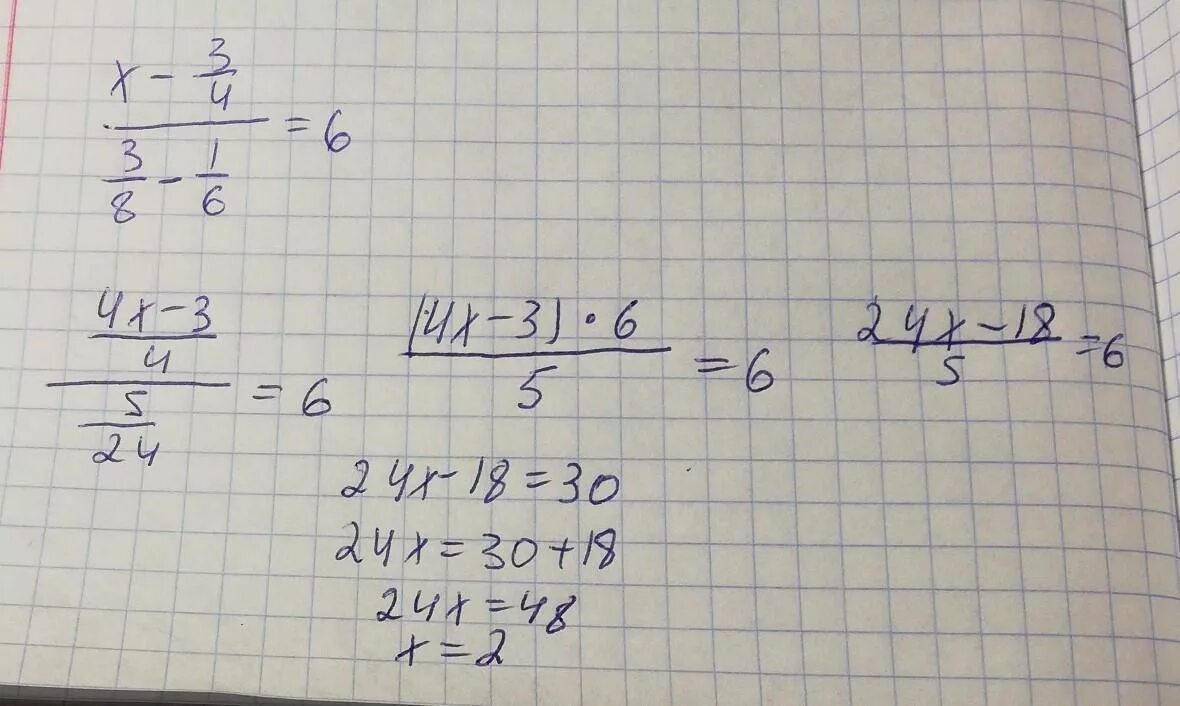 x - 3/4
―――――― = 6
3/8 - 1/6
(4x-3)/4 / (5/24) = 6
(4x-3)·6 / 5 = 6
24x-18 / 5 = 6
24x-18=30
24x=30+18
24x=48
x=2